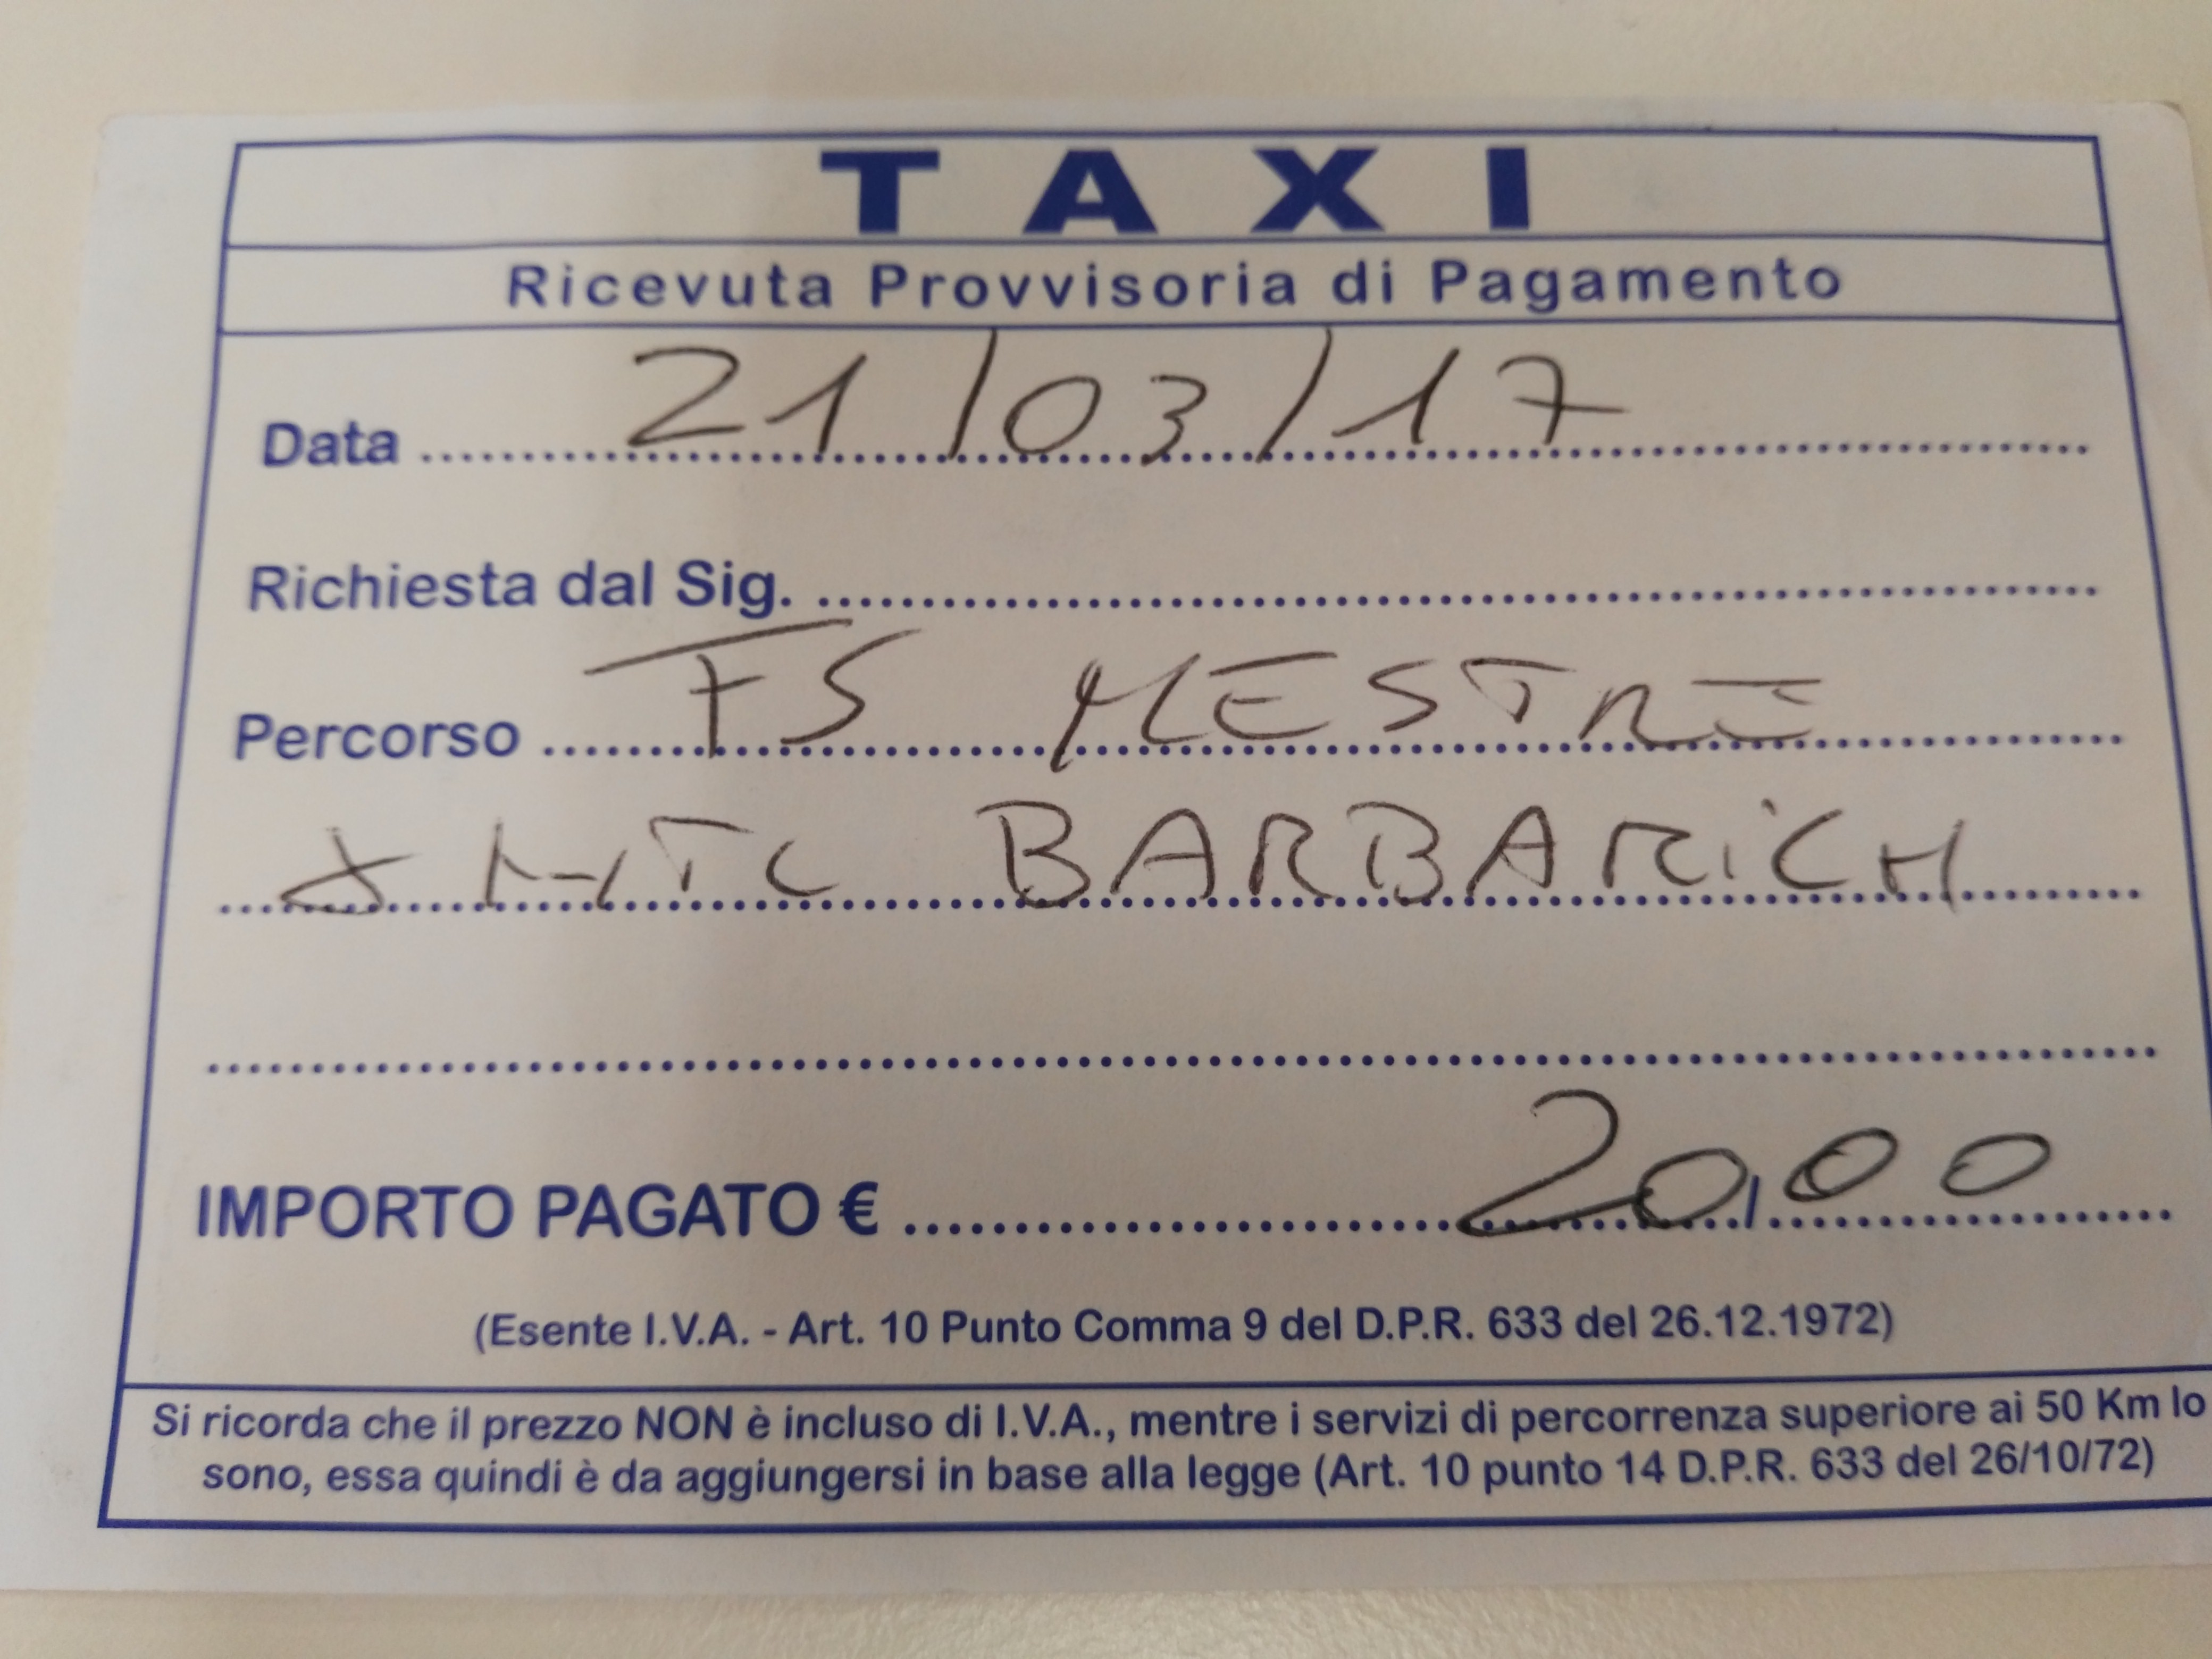 TAXI
Ricevuta Provvisoria di Pagamento
Data 21/03/17
Richiesta dal Sig.
Percorso FS MESTRE
BARBARiCH
IMPORTO PAGATO € 20,00
(Esente I.V.A. - Art. 10 Punto Comma 9 del D.P.R. 633 del 26.12.1972)
Si ricorda che il prezzo NON è incluso di I.V.A., mentre i servizi di percorrenza superiore ai 50 Km lo
sono, essa quindi è da aggiungersi in base alla legge (Art. 10 punto 14 D.P.R. 633 del 26/10/72)